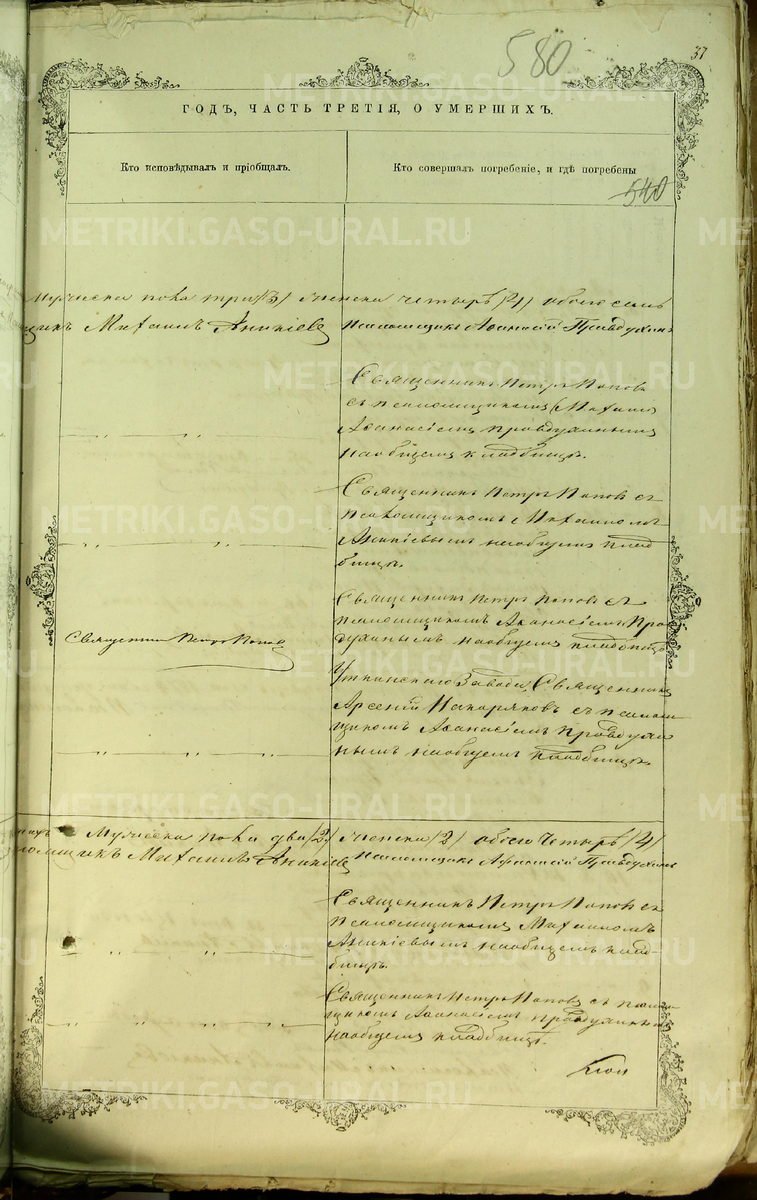 580
37
ГОДЪ, ЧАСТЬ ТРЕТІЯ, О УМЕРШИХЪ.
Кто исповѣдывалъ и пріобщалъ.
Кто совершалъ погребеніе, и гдѣ погребены
540
Мужеска пола три /3/ женска четыре /4/ обоего семь
Михаилъ Аникіевъ
Псаломщикъ Афанасій Правдухинъ
Священникъ Петръ Поповъ
съ псаломщикомъ
Афанасіемъ Правдухинымъ
на общемъ кладбищѣ.
Священникъ Петръ Поповъ съ
псаломщикомъ Михаиломъ
Аникіевымъ на общемъ клад-
бищѣ.
Священникъ Петръ Поповъ съ
псаломщикомъ Афанасіемъ Прав-
духинымъ на общемъ кладбищѣ
Священникъ Петръ Поповъ
Уткинскаго Завода, Священникъ
Арсеній Накаряковъ съ псалом-
щикомъ Афанасіемъ Правдухи-
нымъ на общемъ кладбищѣ.
Мужеска пола два /2/ женска /2/ обоего четыре /4/
Михаилъ Аникіевъ
Псаломщикъ Афанасій Правдухинъ
Священникъ Петръ Поповъ съ
псаломщикомъ Михаиломъ
Аникіевымъ на общемъ клад-
бищѣ.
Священникъ Петръ Поповъ съ псалом-
щикомъ Афанасіемъ Правдухинымъ
на общемъ кладбищѣ.
METRIKI.GASO-URAL.RU